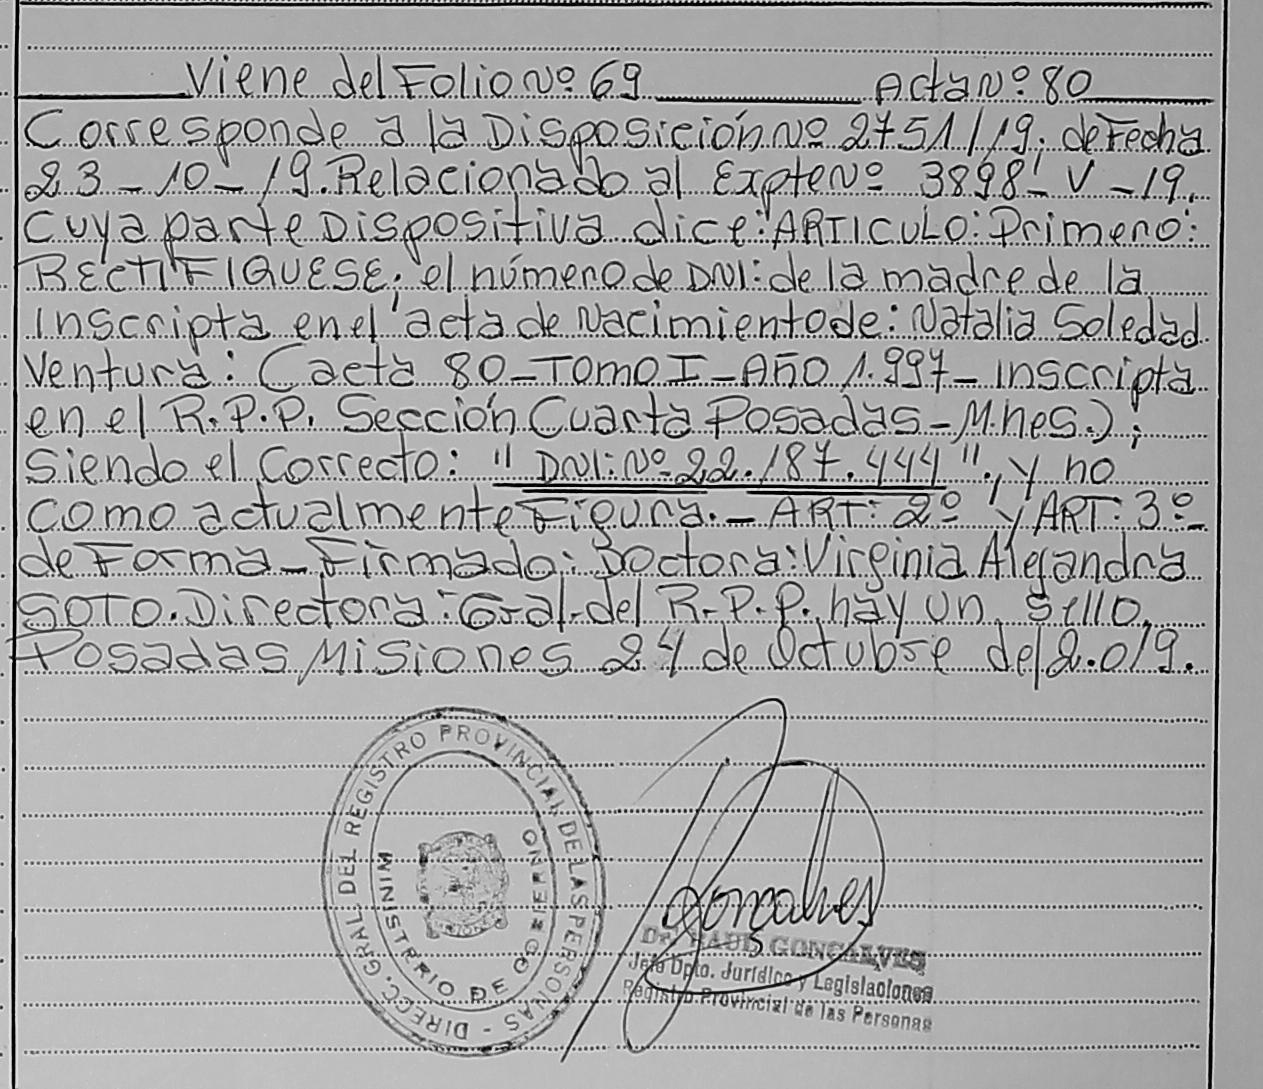 Viene del Folio Nº 69 Acta Nº 80
Corresponde a la Disposición Nº 2751/19; de Fecha
23-10-19. Relacionado al Expte Nº 3898-V-19.
Cuya parte Dispositiva dice: ARTICULO: Primero:
RECTIFIQUESE; el número de DNI: de la madre de la
Inscripta en el acta de Nacimiento de: Natalia Soledad
Ventura: (acta 80-Tomo I-Año 1.997-Inscripta
en el R.P.P. Sección Cuarta Posadas-Mnes.);
Siendo el Correcto: "DNI: Nº 22.187.444"., y no
como actualmente Figura.- ART: 2º y ART: 3º-
de Forma-Firmado: Doctora: Virginia Alejandra
SOTO. Directora: Gral. del R.P.P. hay un sello.
Posadas Misiones 24 de Octubre del 2.019.
DIRECC. GRAL. DEL REGISTRO PROVINCIAL DE LAS PERSONAS -
MINISTERIO DE GOBIERNO
Gonçalves
Dr. RAUL GONÇALVES
Jefe Dpto. Jurídico y Legislaciones
Registro Provincial de las Personas